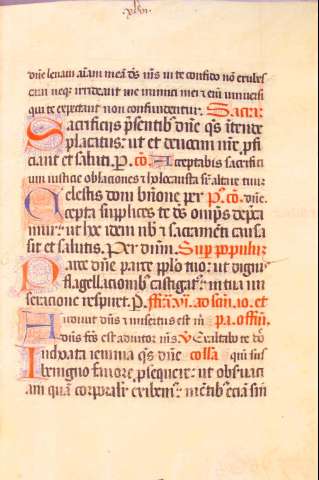 xlvii
dn̄e levavi aīam meā ds̄ m̄s in te confido nō erubes
cam neq; irrideant me inimici mei ⁊ eīm universi
qui te expectant non confundentur. Sacra
Sacrificiis p̄sentib; dn̄e q̄s ītende
placatus: ut et devocioni nr̄e p̄fi
ciant et saluti. P. cō. Acceptabis sacrifici
um iusticie oblaciones ⁊ holocausta sr̄ altare tuū
Celestis doni
per P. cō. dn̄e.
cepta supplices te ds̄ omīps dep̄ca
mur: ut hec idem nb̄ ⁊ sacramēti causa
sit et salutis. Per dn̄m. Sup populū
Parce dn̄e parce pp̄lo tuo: ut dignis
flagellacionib; castigat; in tua mi
seracione respiret. P.
et
Audivit dn̄s ⁊ misertus est m̄
dn̄s fc̄s est adiutor m̄s. V Exaltabo te dn̄e
Inchoata ieiunia q̄s dn̄e colla
benigno favore p̄sequere: ut observaci
am quā corporalr̄ exibem; mētib; eciā sin